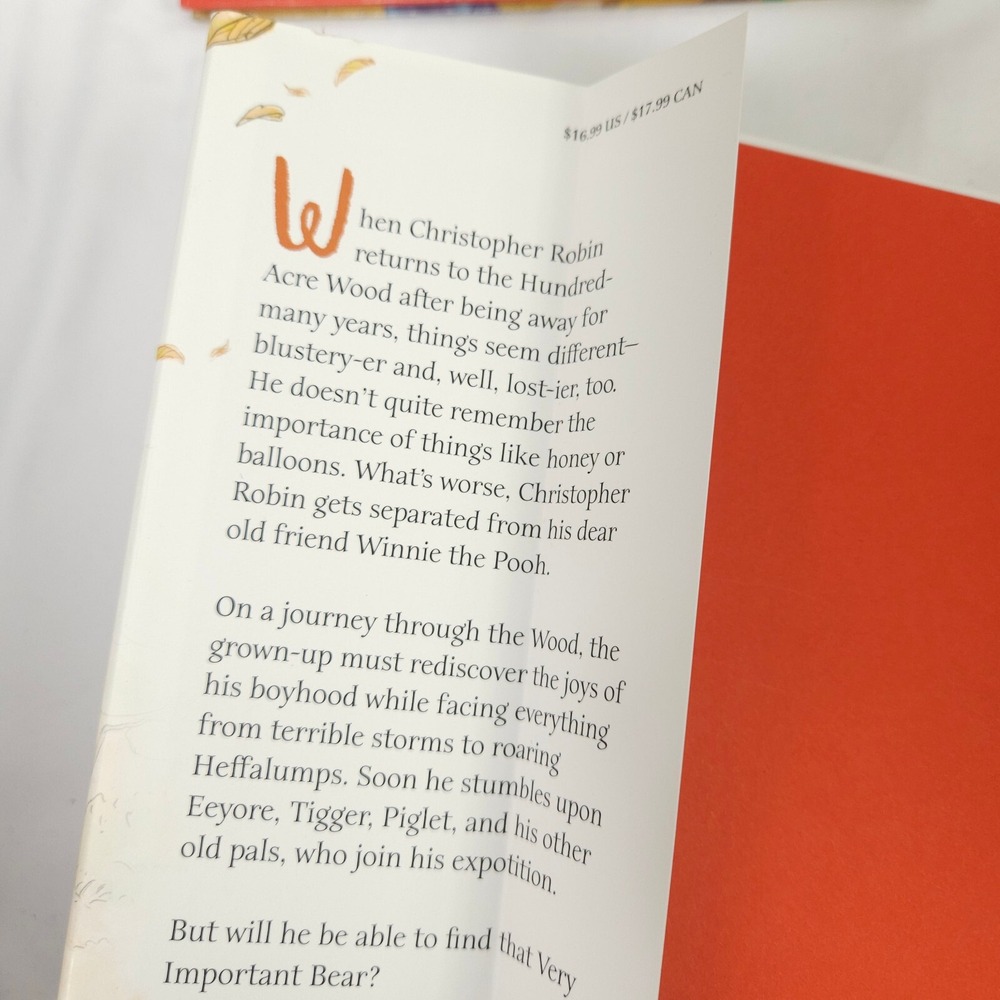 $16.99 US / $17.99 CAN
When Christopher Robin
returns to the Hundred-
Acre Wood after being away for
many years, things seem different—
blustery-er and, well, lost-ier, too.
He doesn't quite remember the
importance of things like honey or
balloons. What's worse, Christopher
Robin gets separated from his dear
old friend Winnie the Pooh.
On a journey through the Wood, the
grown-up must rediscover the joys of
his boyhood while facing everything
from terrible storms to roaring
Heffalumps. Soon he stumbles upon
Eeyore, Tigger, Piglet, and his other
old pals, who join his expotition.
But will he be able to find that Very
Important Bear?